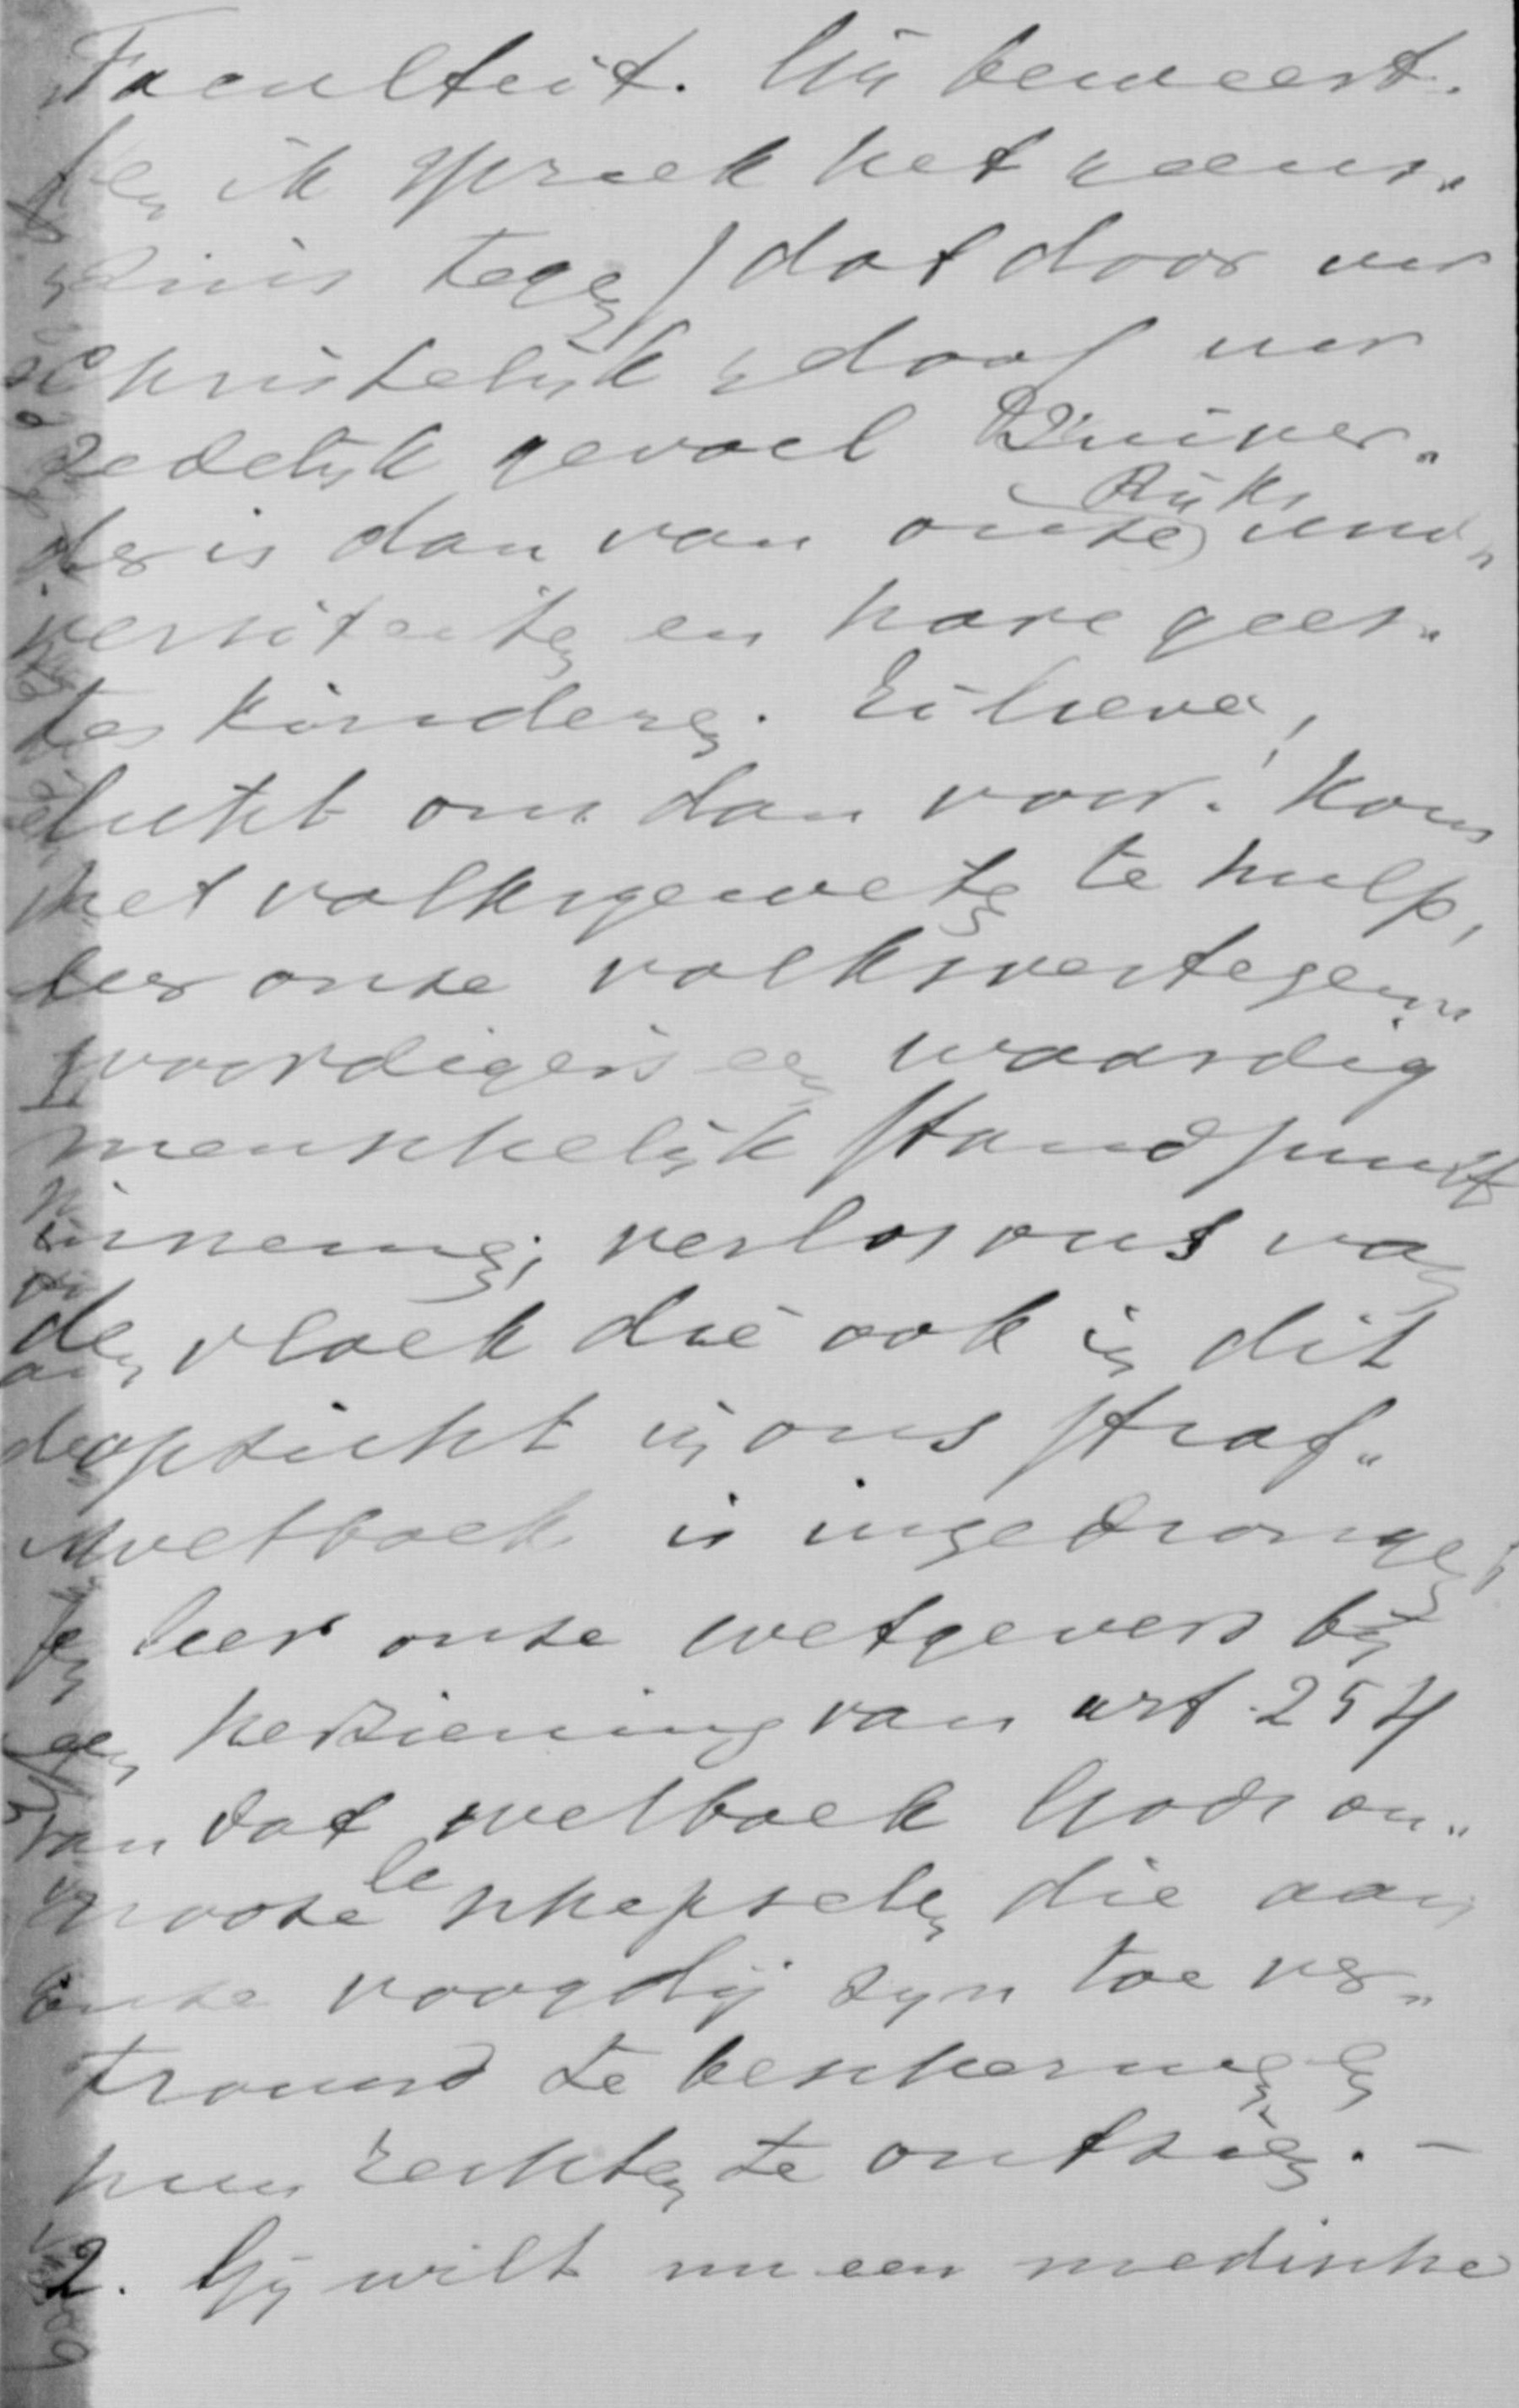 Faculteit. Gij beweert.
(en ik spreek het geens„
zins tegen) dat door uw
Christelijk geloof uw
zedelijk gevoel zuiver„
der is dan van onze Rijks uni„
versiteiten en hare gees„
teskinderen. Ei lieve,
licht ons dan voor! Kom
het volksgeweten te hulp,
leer onze volksvertegen„
woordigers een waardig
menschelijk standpunt
innemen; verlos ons van
den vloek die ook in dit
opzicht in ons straf„
wetboek is ingedrongen;
leer onze wetgevers bij
herziening van art. 254
van dat wetboek Gods on„
noozele schepselen die aan
onze voogdij zijn toe ver„
trouwd te beschermen en
hun rechten te ontzien. —
2. Gij wilt nu een medische